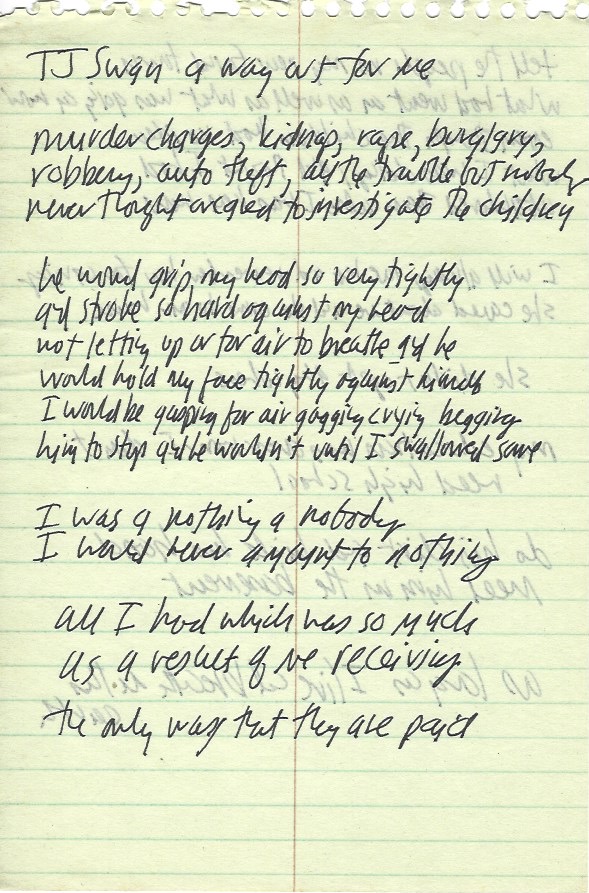 TJ Swan a way out for me
murder charges, kidnap, rape, burglary,
robbery, auto theft, all the trouble but nobody
never thought or cared to investigate the children
he would grip my head so very tightly
and stroke so hard against my head
not letting up or for air to breathe and he
would hold my face tightly against himself
I would be gasping for air gagging crying begging
him to stop and he wouldn't until I swallowed some
I was a nothing a nobody
I would never amount to nothing
all I had which was so much
as a result of me receiving
the only way that they are paid